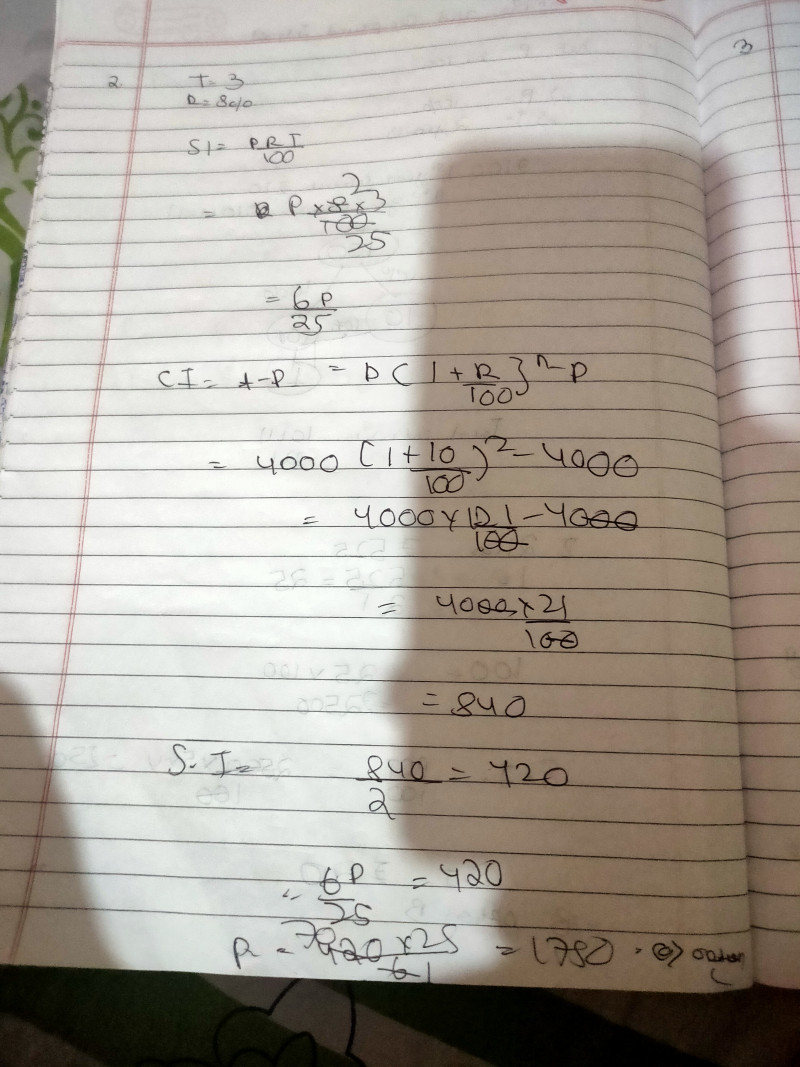 3
2 T = 3
R = 8%
SI = PRT/100
= P × 8 × 3/100 2 25
= 6P/25
CI = A-P = P(1 + R/100}^n - P
= 4000 (1 + 10/100)^2 - 4000
= 4000 × 121/100 - 4000
= 4000 × 21/100
= 840
S.I = 840/2 = 420
6P/25 = 420
P = 70 420 × 25/6 1 = 1750